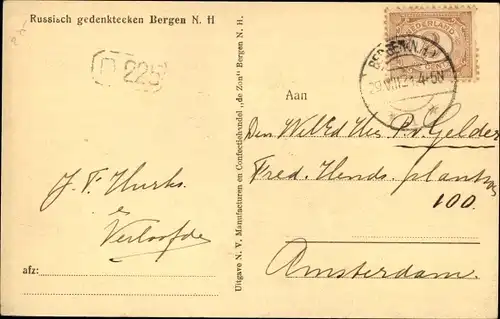 Russisch gedenkteeken Bergen N. H
225
NEDERLAND
BERGEN (N.H.)
Aan
Den WelEd Heer P. v. Gelder
Fred. Hends. plantsn
100.
Amsterdam.
J. F. Hurks.
&
Verloofde
afz:
Uitgave N. V. Manufacturen en Confectiehandel „de Zon” Bergen N. H.